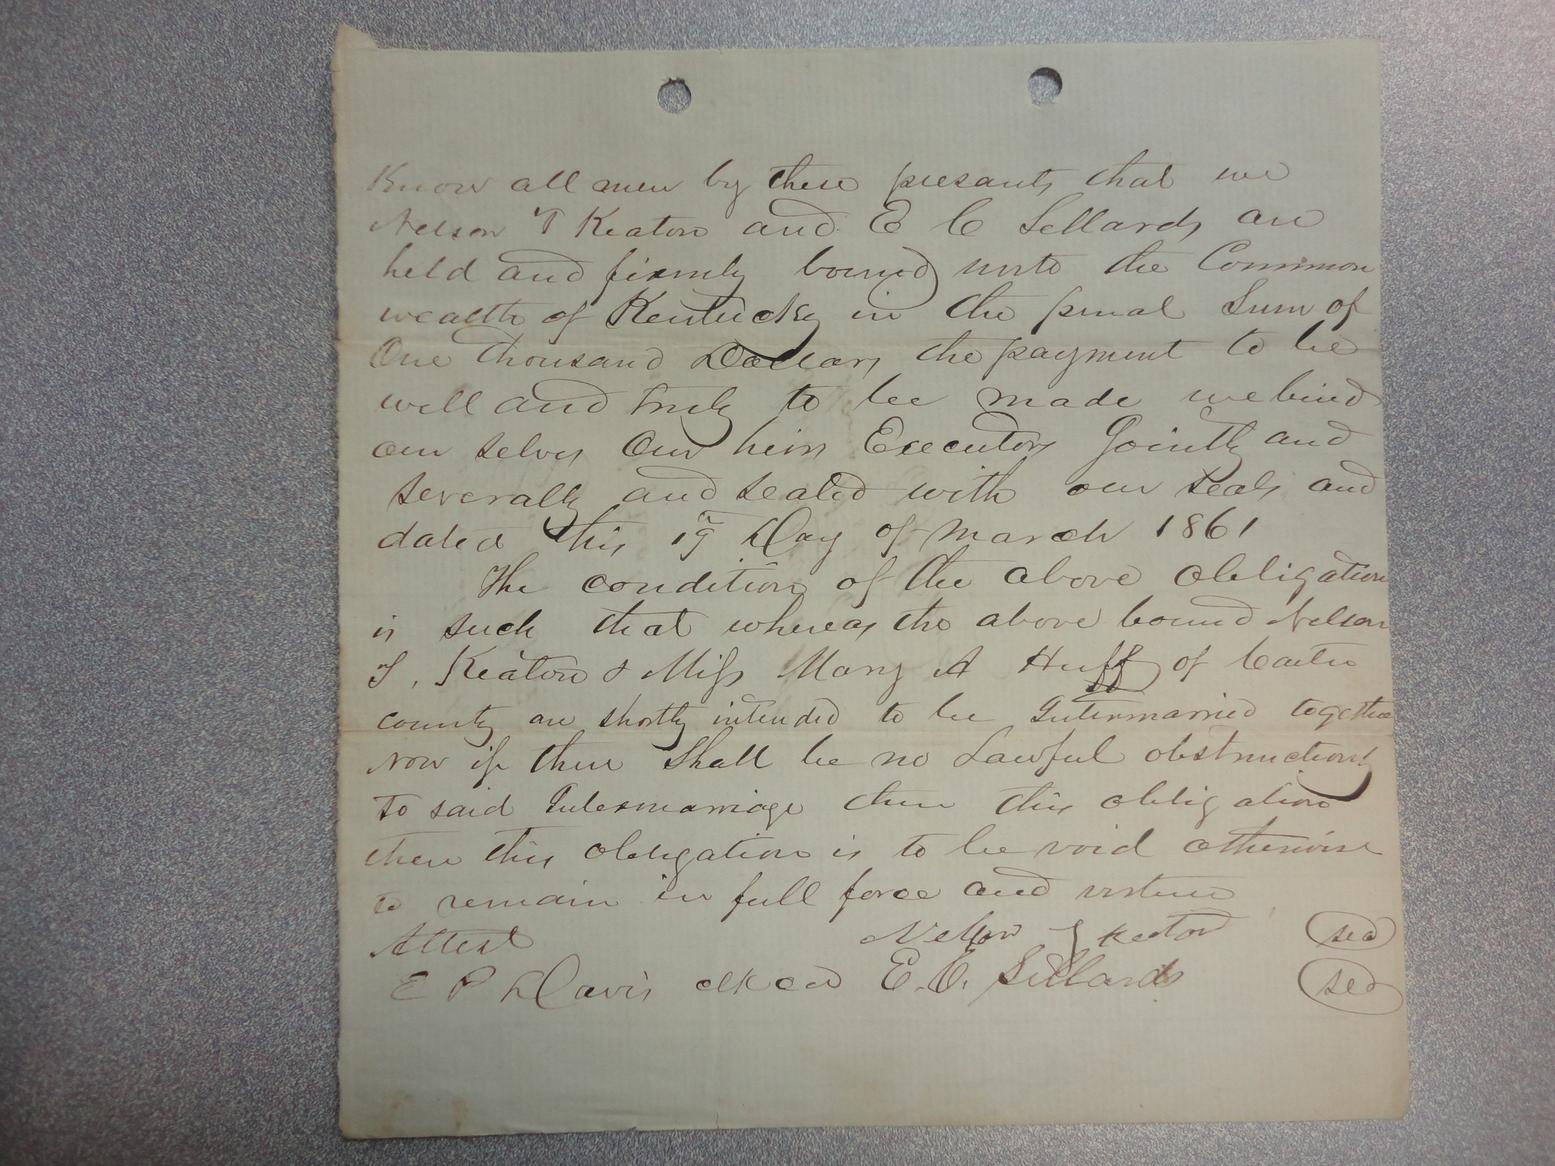 Know all men by these presants that we
Nelson T Keaton and E C Sellards are
held and firmly bound unto the Common
wealth of Kentucky in the penal Sum of
One thousand Dollars the payment to be
well and truly to be made we bind
our selves Our heirs Executors Jointly and
severally and sealed with our seals and
dated this 19th Day of March 1861
The condition of the above obligation
is such that whereas the above bound Nelson
T. Keaton & Miss Mary A Huff of Carter
county are shortly intended to be Intermarried together
Now if there Shall be no Lawful obstructions
to said Intermarriage then this obligation
then this obligation is to be void otherwise
to remain in full force and virtue
Attest Nelson T Keeton sea
E P Davis clk E.C. Sellards sea